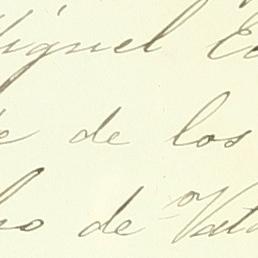 Miguel E
e de los
ho de Vata